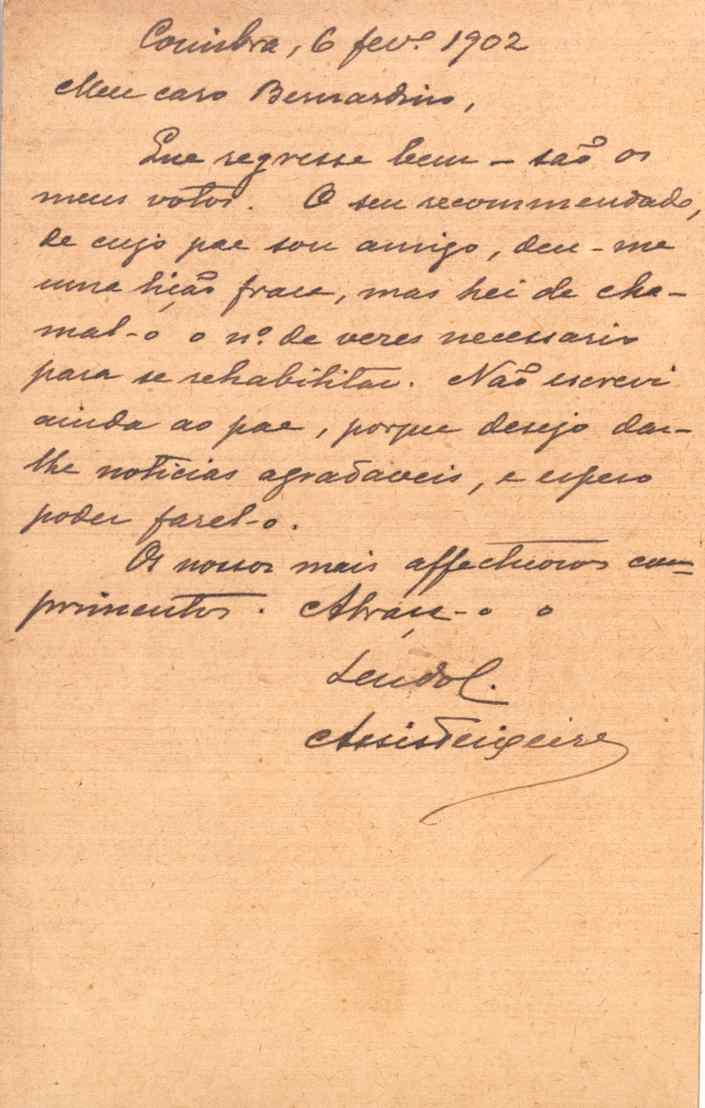 Coimbra, 6 fevº 1902
Meu caro Bernardino,
Que regresse bem – são os
meus votos. O seu recommendado,
de cujo pae sou amigo, deu-me
uma lição fraca, mas hei de cha-
mal-o o nº de vezes necessario
para se rehabilitar. Não escrevi
ainda ao pae, porque desejo dar-
lhe noticias agradaveis, e espero
poder fazel-o.
Os nossos mais affectuosos com-
primentos. Abraça-o o
Assis Teixeira